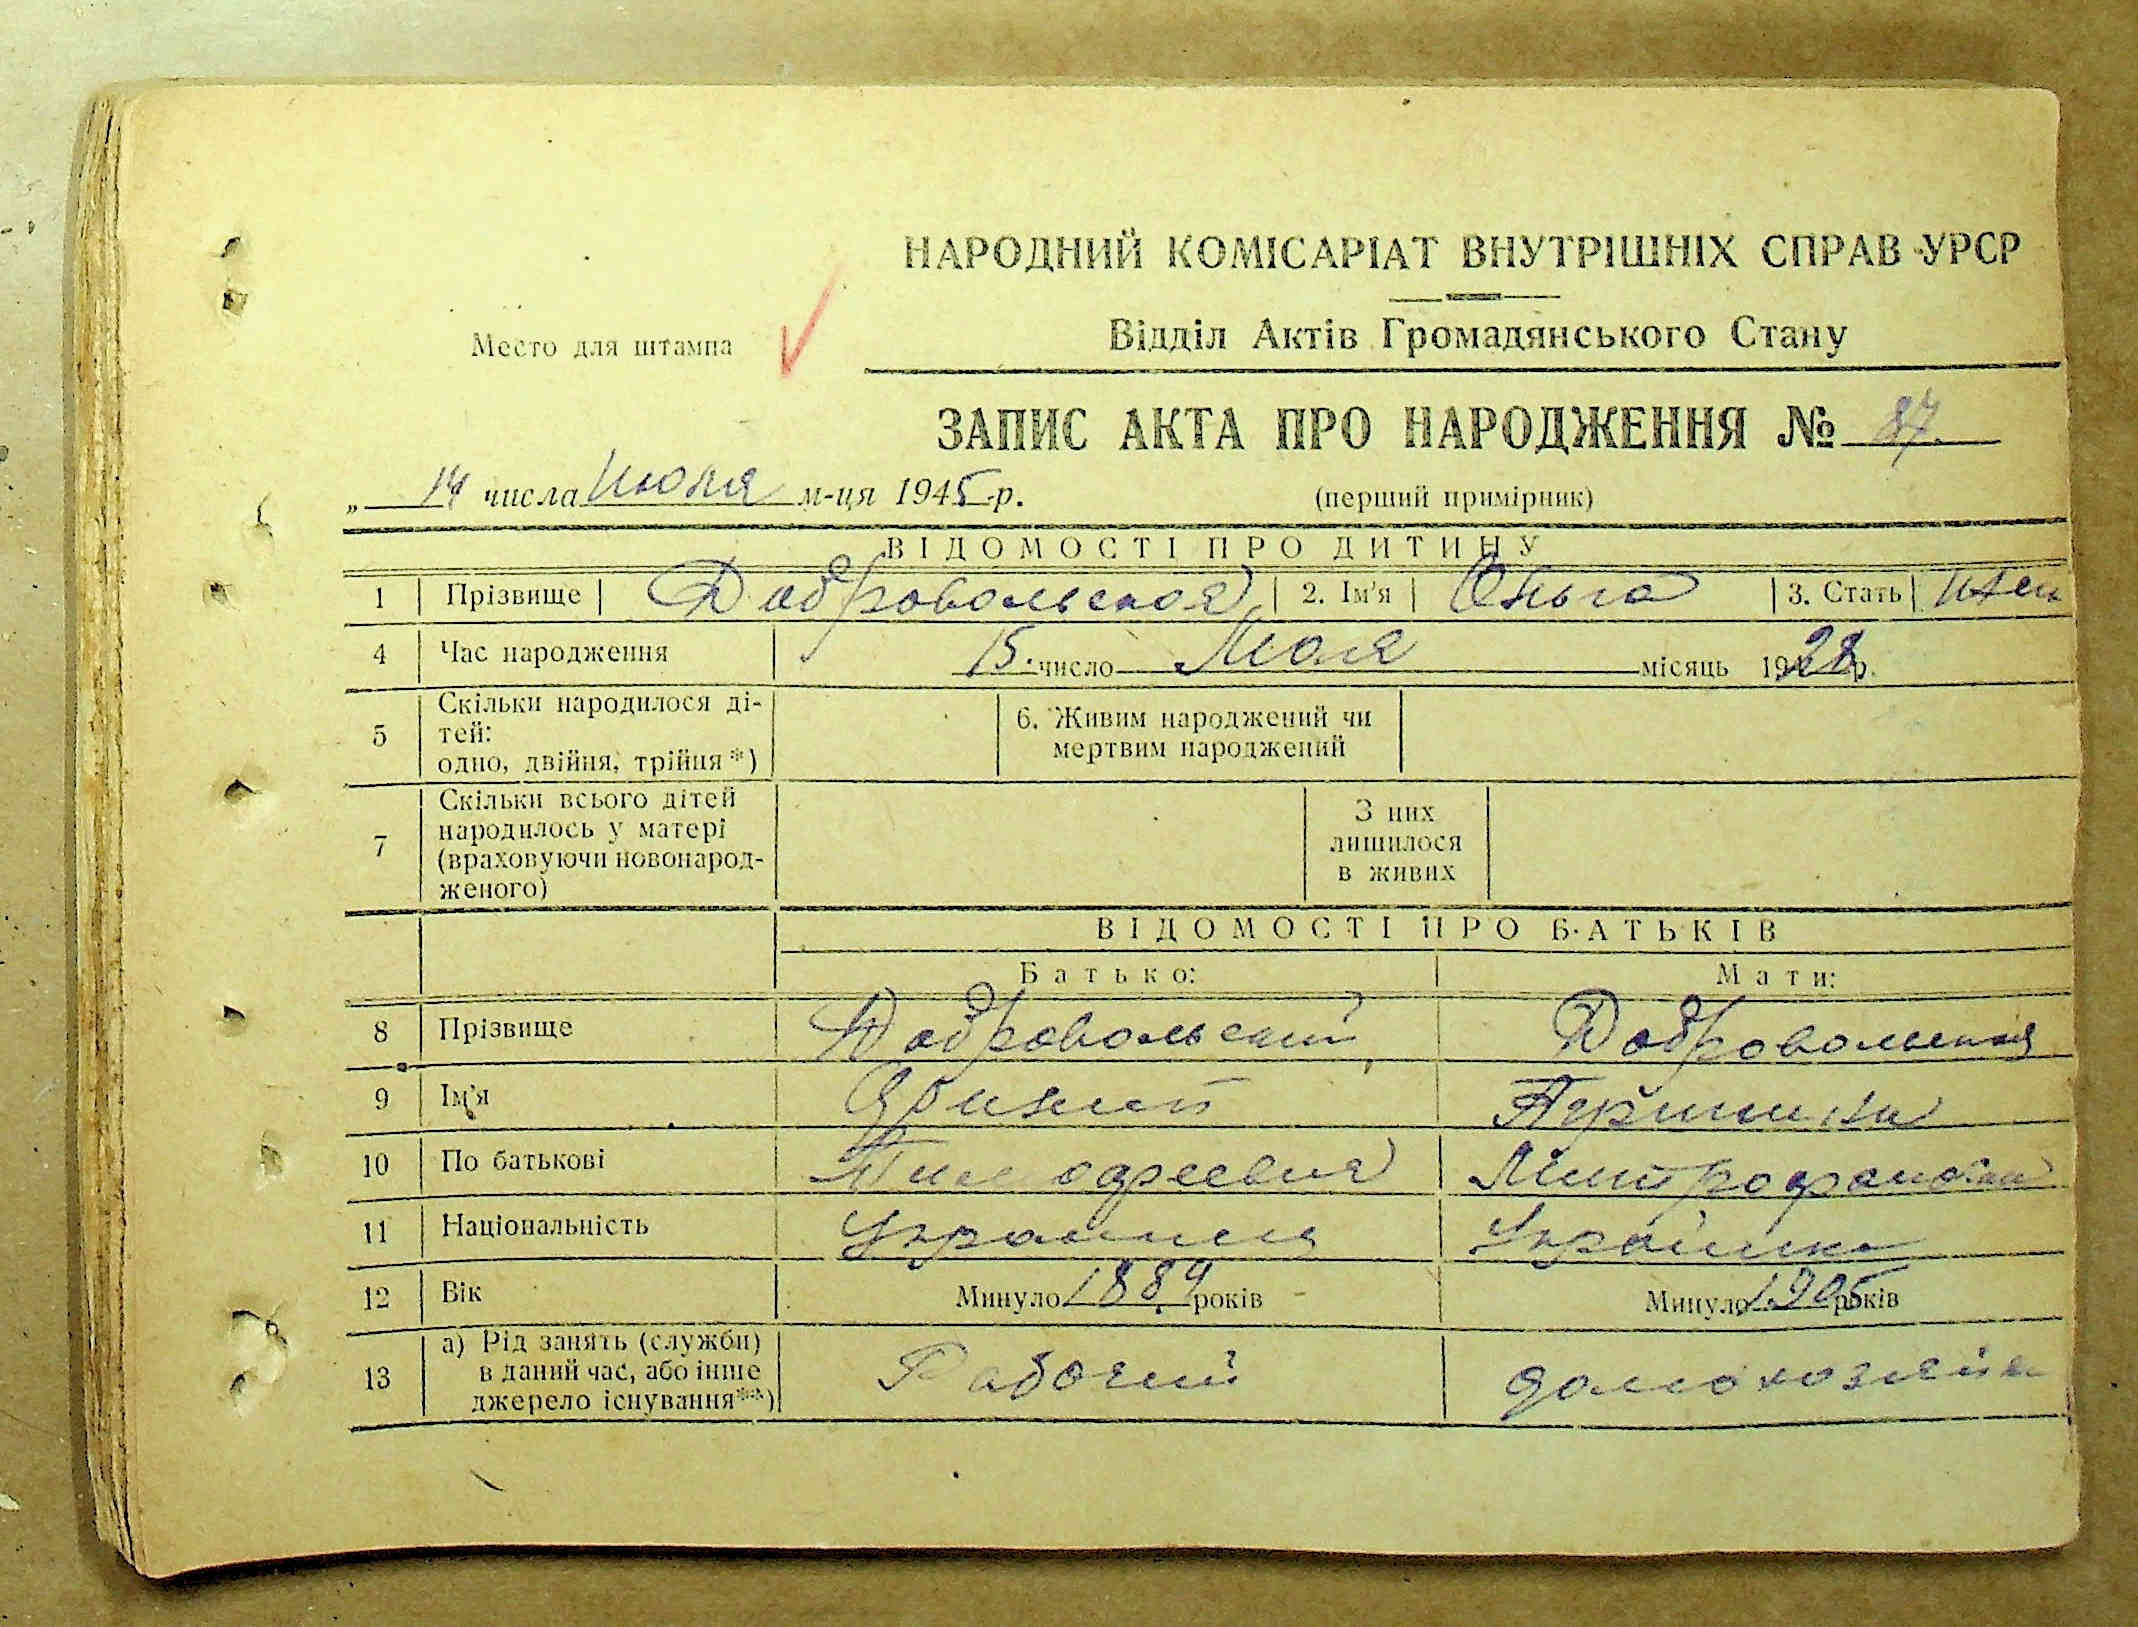 НАРОДНИЙ КОМІСАРІАТ ВНУТРІШНІХ СПРАВ УРСР
Место для штампа
Відділ Актів Громадянського Стану
ЗАПИС АКТА ПРО НАРОДЖЕННЯ № 87.
„ 14 числа Июля м-ця 1945 р. (перший примірник)
ВІДОМОСТІ ПРО ДИТИНУ
1 Прізвище Добровольская 2. Ім'я Ольга 3. Стать жен
4 Час народження 15. число Июля місяць 1928 р.
5 Скільки народилося ді-
тей:
одно, двійня, трійня *)
6. Живим народжений чи
мертвим народжений
7 Скільки всього дітей
народилось у матері
(враховуючи новонарод-
женого)
З них
лишилося
в живих
ВІДОМОСТІ ПРО БАТЬКІВ
Батько: Мати:
8 Прізвище Добровольский Добровольская
9 Ім'я
10 По батькові Тимофеевич Митрофановна
11 Національність Українка
12 Вік Минуло 1889 років Минуло 1905 років
13 а) Рід занять (служби)
в даний час, або інше
джерело існування**)
Рабочий домохозяйка